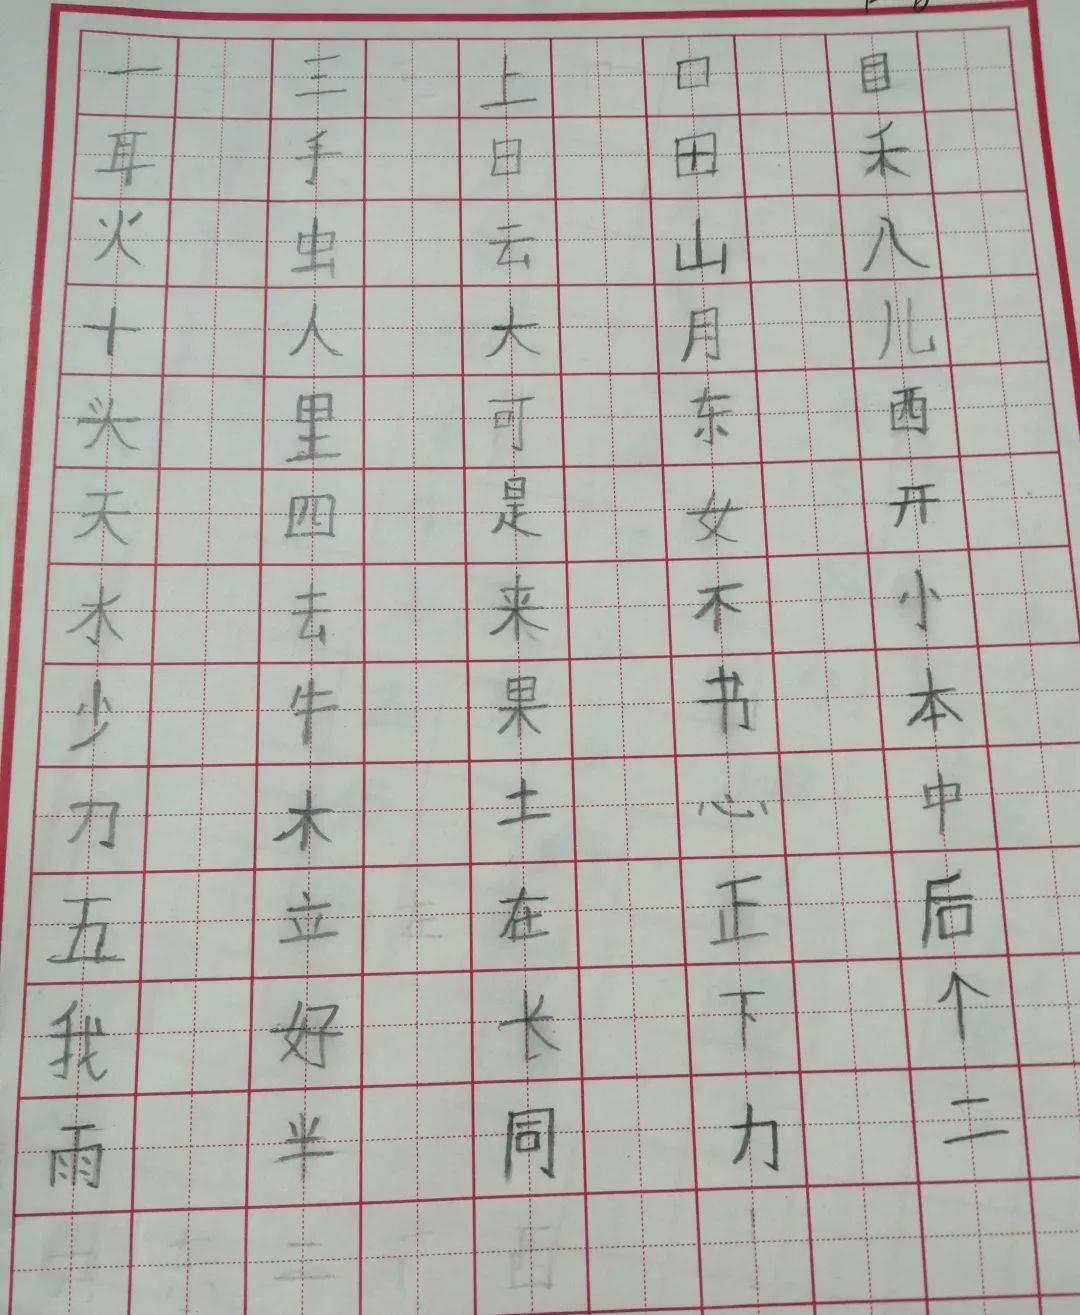 一 三 上 口 目
耳 手 日 田 禾
火 虫 云 山 八
十 人 大 月 儿
头 里 可 东 西
天 四 是 女 开
水 去 来 不 小
少 牛 果 书 本
刀 木 土 心 中
五 立 在 正 后
我 好 长 下 个
雨 半 同 力 二